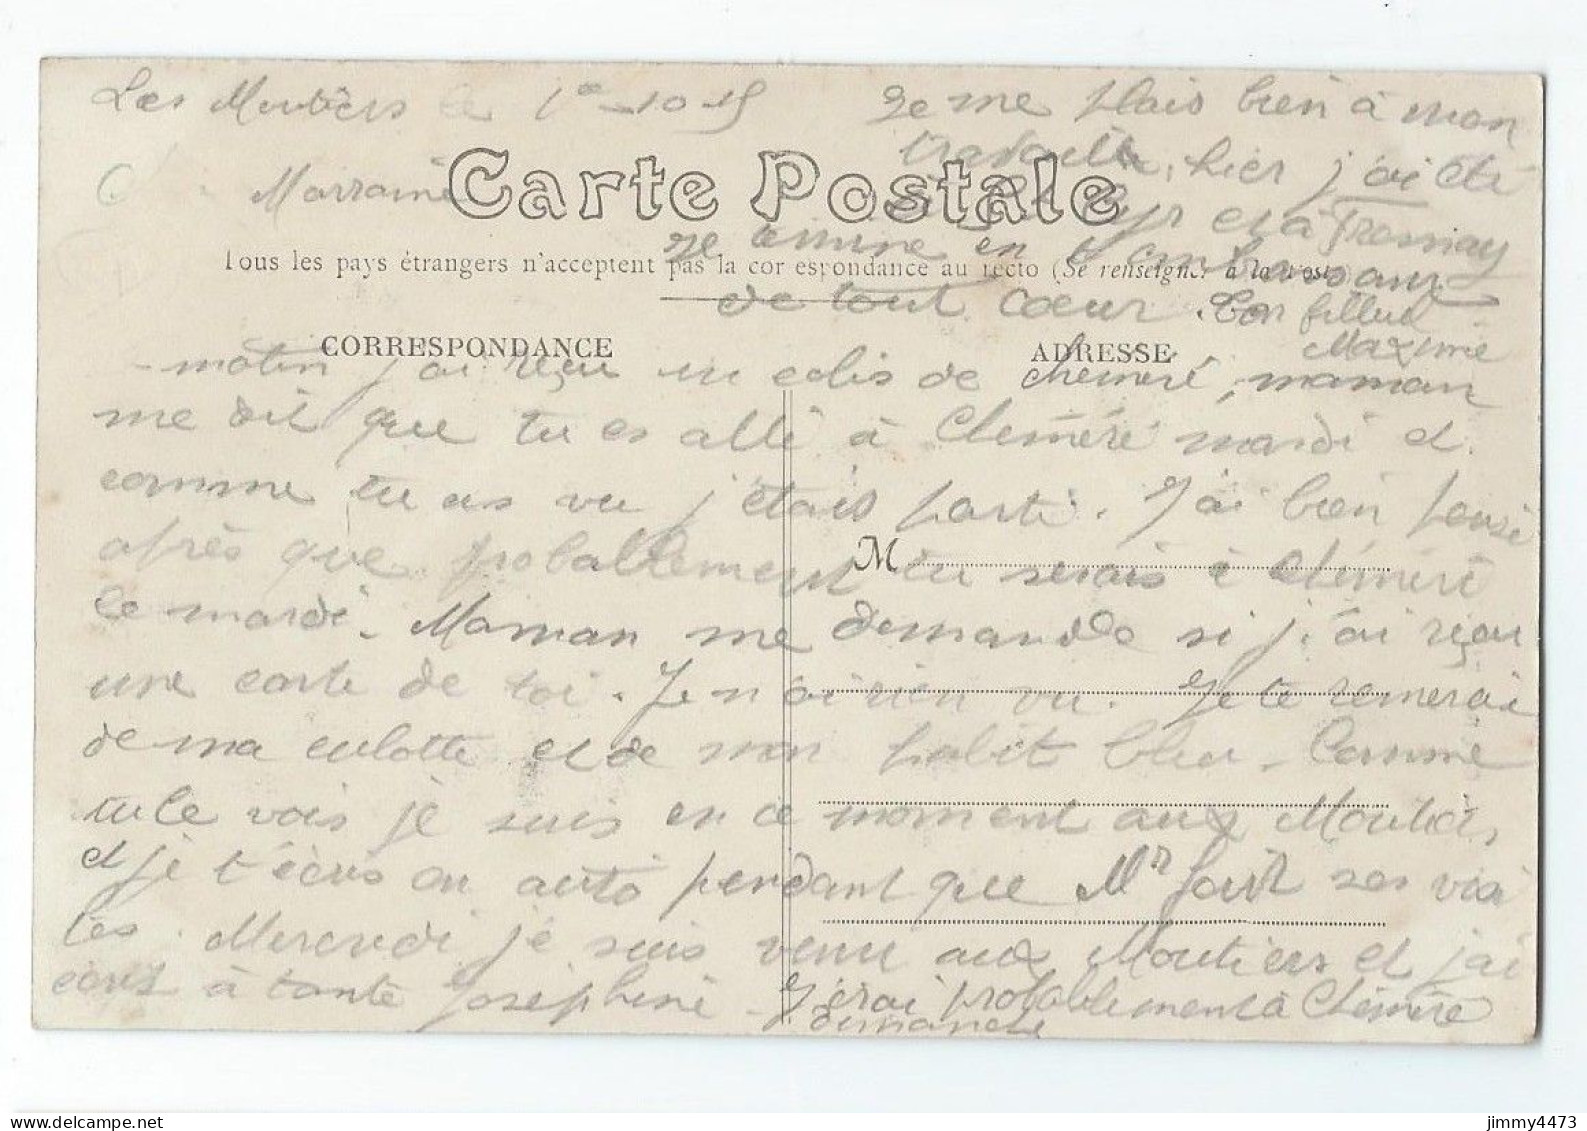 Les Moutiers le 1er-10-15
Marraine
CARTE POSTALE
Tous les pays étrangers n'acceptent pas la correspondance au recto (Se renseigner à la poste)
CORRESPONDANCE
ADRESSE
M
matin j'ai reçu un colis de Chéméré, maman
me dit que tu es allé à Chéméré mardi et
comme tu as vu j'étais parti. J'ai bien pensé
après que probablement tu serais à Chéméré
le mardi. Maman me demande si j'ai reçu
une carte de toi. Je n'ai rien vu. Je te remerci
de ma culotte et de mon habit bleu. Comme
tu le vois je suis en ce moment aux Moutiers,
et je t'écris en auto pendant que Mr fait ses visi
tes. Mercredi je suis venu aux Moutiers et j'ai
écrit à tante Joséphine. J'irai probablement à Chéméré
dimanche
Je me plais bien à mon
travail, hier j'ai été
à Cyr et à Fresnay
je termine en t'embrassant
de tout cœur. Ton filleul
Maxime
jimmy4473
www.delcampe.net